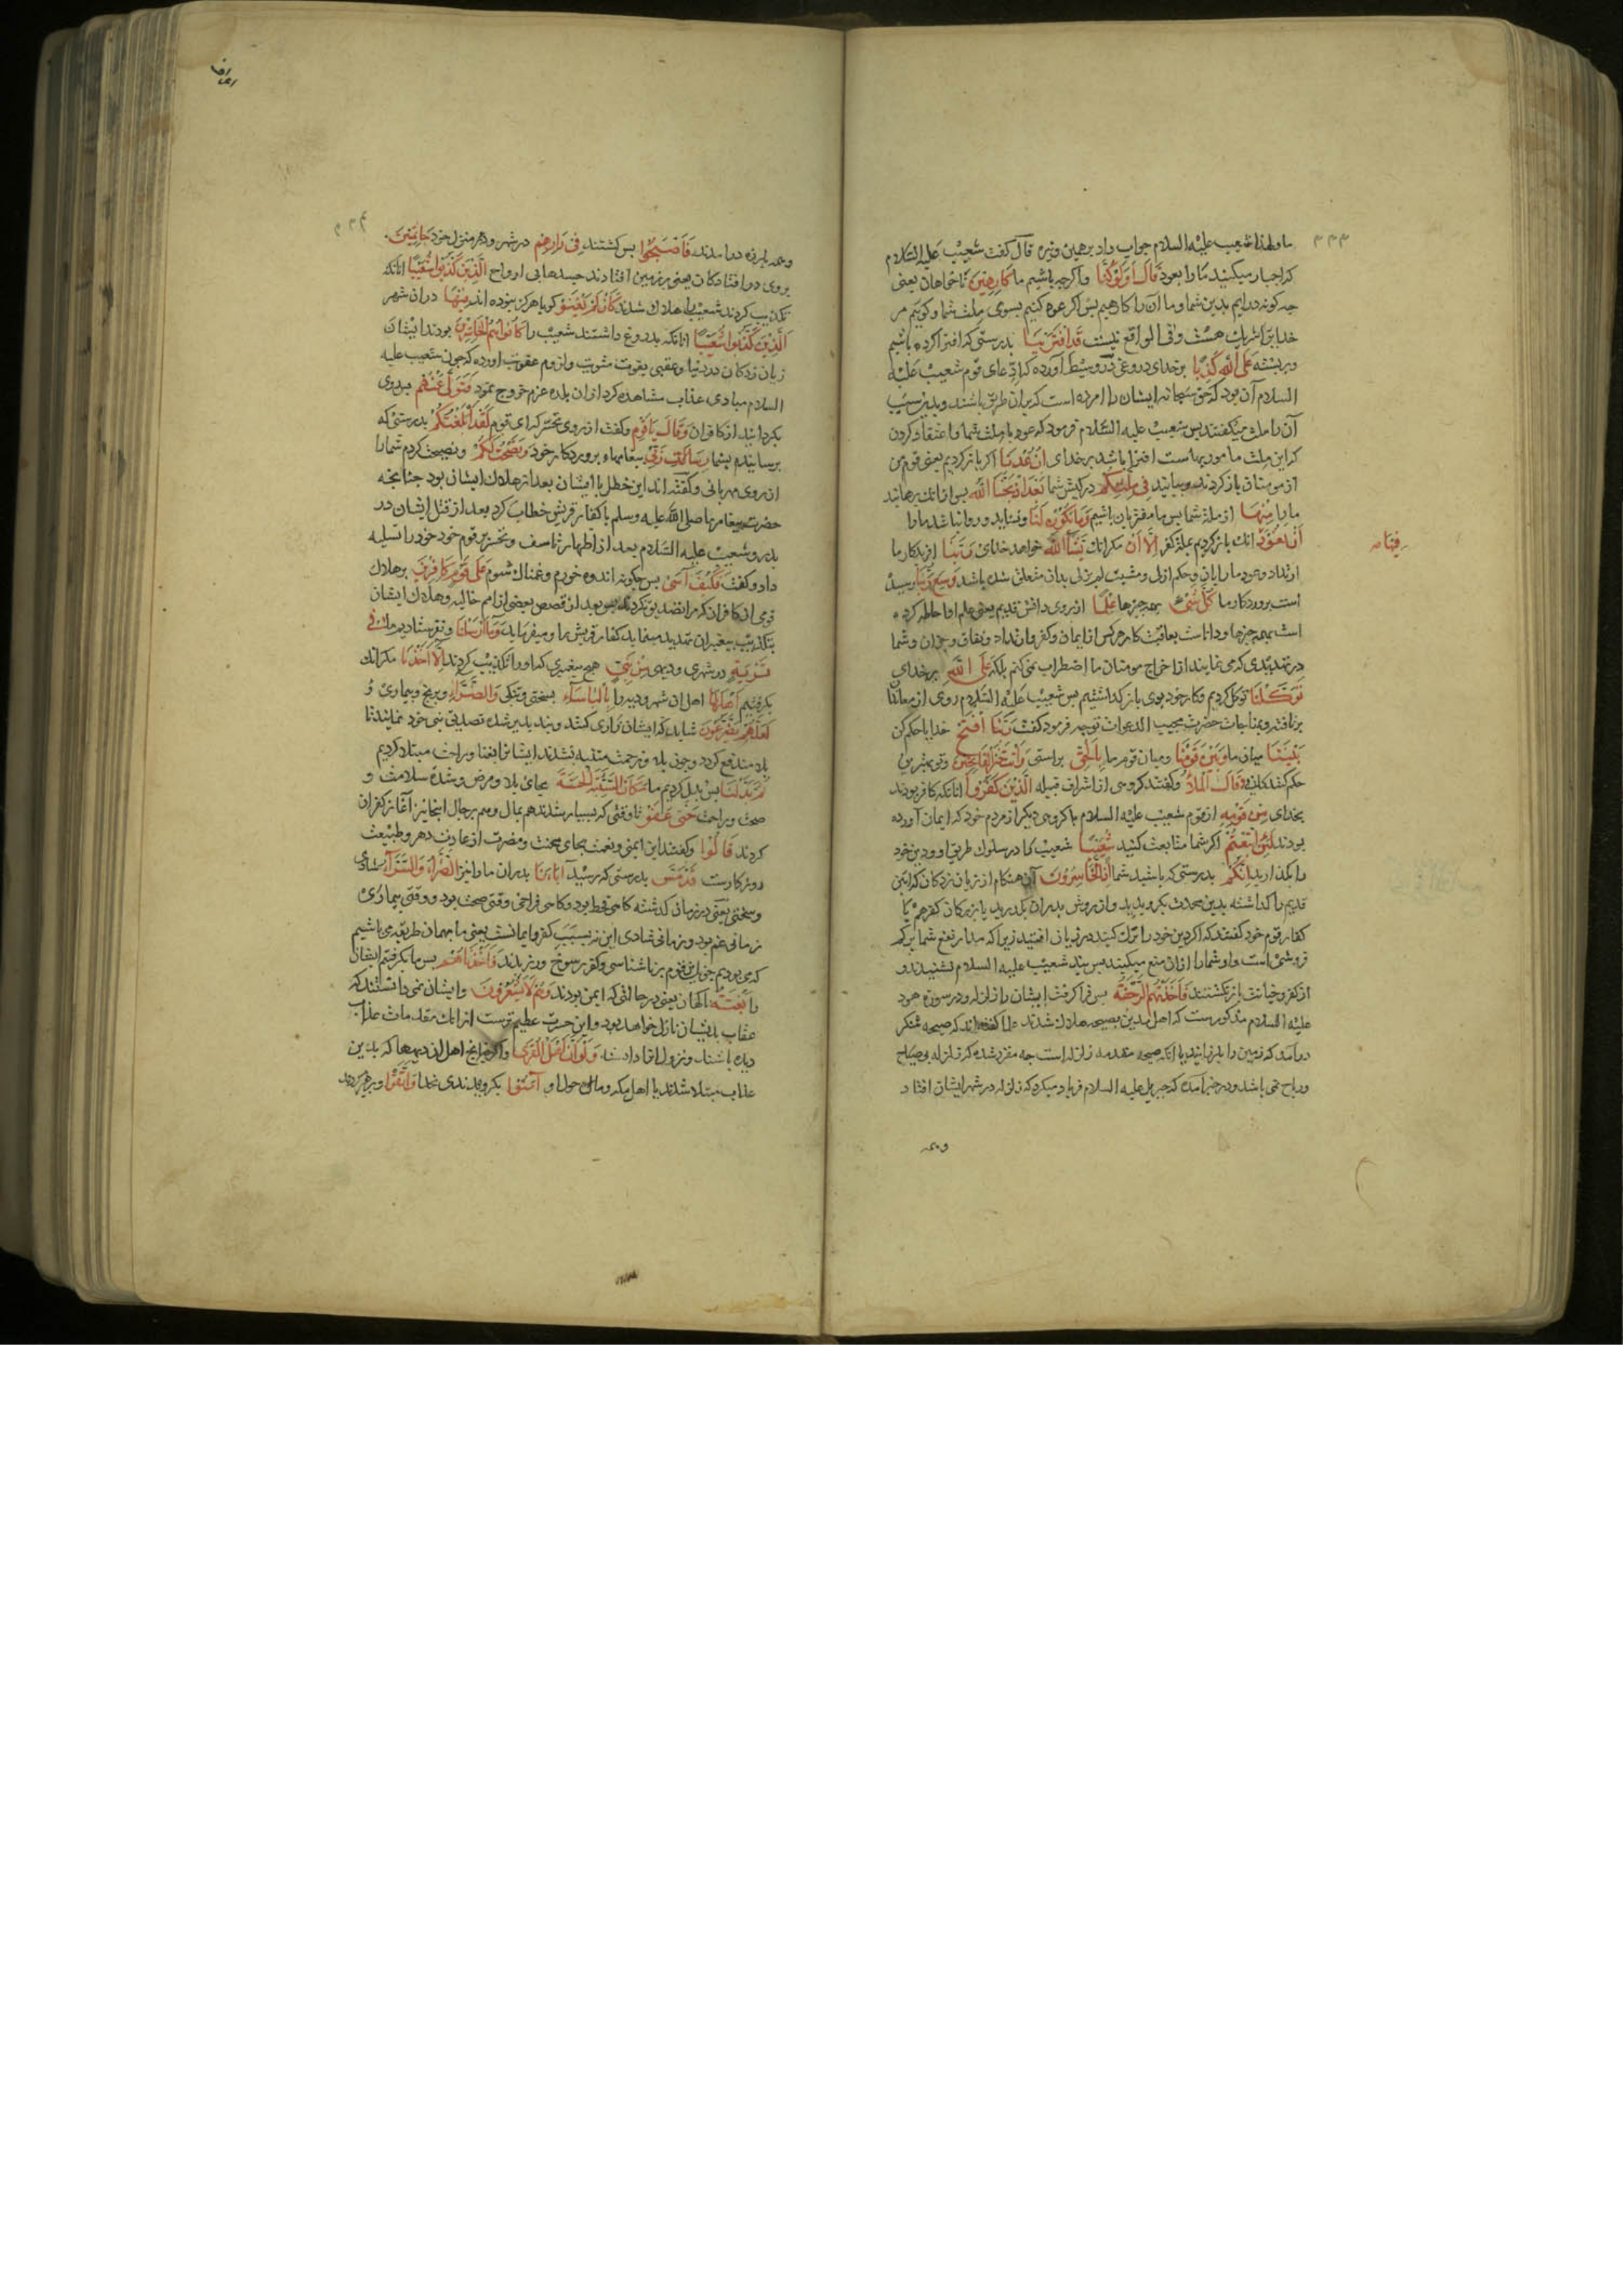 ۳۳۳
ما ولهذا شعیب علیه السلام جواب داد برهمین وتیره قال گفت شعیب علیه السلام
که اجبار میکنید ما را بعود قال اولو کنا واگرچه باشیم ما کارهین ناخواهان یعنی
چه کونه درایم بدین شما وما آن را کارهیم پس اکر عود کنیم بسوی ملت شما وکوییم مر
خدایرا شریک هست وفی الواقع نیست قد افترینا بدرستی که افترا کرده باشیم
وبربسته علی الله کذبا برخدای دروغی در وسیط آورده که ادعای قوم شعیب علیه
السلام آن بود که حق سبحانه ایشان را امر کرده است که بران طریق باشند وبدین سبب
آن را ملت میکفتند پس شعیب علیه السلام فرمود که عود با ملت شما واعتقاد کردن
که این ملت مامور بهاست افترا باشد برخدای ان عدنا اکر باز کردیم یعنی قوم من
از مومنان باز کردند وبیایند فی ملتکم در کیش شما بعد اذ نجنا الله پس ازانک برهانید
ما را منها از ملت شما پس ما مفتریان باشیم وما یکون لنا ونشاید وروا نباشد ما را
ان نعود انک باز کردیم بملة کفر الا ان مکر انک یشآ الله خواهد خدای ربنا پروردکار ما
فیها صه
ارتداد وعود ما را بان وحکم ازلی ومشیت لم یزلی بدان متعلق شده باشد وسع ربنا رسیده
است پروردکار ما کل شئ بهمه چیزها علما از روی دانش قدیم یعنی علم او احاطه کرده
است بهمه چیزها وداناست بعاقبت کار هر کس از ایمان وکفر وارتداد ونفاق وچون وشما
در تهدیدی که می نمایند از اخراج مومنان ما اضطراب نمی کنیم بلکه علی الله برخدای
توکلنا توکل کردیم وکار خود بوی باز کذاشتیم پس شعیب علیه السلام روی از معاندان
برتافته وبمناجات حضرت مجیب الدعوات توجه فرمود کفت ربنا افتح خدایا حکم کن
بیننا میان ما وبین قومنا ومیان قوم ما بالحق براستی وانت خیر الفاتحین وتو بهترین
حکم کنندکانی وقال الملأ وکفتند کروهی از اشراف قبیله الذین کفروا انانکه کافر بودند
بخدای من قومه از قوم شعیب علیه السلام با کروهی دیکر از مردم خود که ایمان آورده
بودند لئن اتبعتم اکر شما متابعت کنید شعیبا شعیب را در سلوک طریق او ودین خود
را بکذارید انکم بدرستی که باشید شما اذا لخاسرون آن هنکام از زیان زدکان که دین
قدیم را کذاشته بدین محدث بکروید واز روش پدران بکذرید یا بزرکان کفره با
کفار قوم خود کفتند که اکر دین خود را ترک کنید در زیان افتید زیرا که مدار نفع شما بر کم
فروشی است واو شما را ازان منع میکند پس پند شعیب علیه السلام نشنیدند و
از کفر وخیانت باز نکشتند فاخذتهم الرجفة پس فرا کرفت ایشان را زلزله ودر سوره هود
علیه السلام مذکورست که اهل مدین بصیحه هلاک شدند اما کفته اند که صیحه منکر
درآمد که زمین را بلرزانید یا انکه صیحه مقدمه زلزله است چه مقرر شده که زلزله بی صیاح
وریاح نمی باشد ودر خبر آمده که جبریل علیه السلام فریاد میکرد که زلزله در شهر ایشان افتاد
وهمه
اعراف
۳۳۴
وهمه بلرزه درامدند فاصبحوا پس کشتند فی دارهم در شهر ودر منزل خود جاثمین
بروی درافتادکان یعنی بر زمین افتادند جسدها بی ارواح الذین کذبوا شعیبا انانکه
تکذیب کردند شعیب را هلاک شدند کأن لم یغنوا کویا هرکز نبوده اند فیها دران شهر
الذین کذبوا شعیبا انانکه بدروغ داشتند شعیب را کانوا هم الخاسرین بودند ایشان
زیان زدکان در دنیا وعقبی بفوت مثوبت ولزوم عقوبت اورده که چون شعیب علیه
السلام مبادی عذاب مشاهده کرد از ان بلده عزم خروج نمود فتولی عنهم پس روی
بکردانید از کافران وقال یا قوم وکفت از روی تحسر که ای قوم لقد ابلغتکم بدرستی که
برسانیدم بشما رسالات ربی پیغامهاء پروردکار خود ونصحت لکم ونصیحت کردم شما را
از روی مهربانی وکفته اند این خطاب با ایشان بعد از هلاک ایشان بود چنانچه
حضرت پیغامبر ما صلی الله علیه وسلم با کفار قریش خطاب کرد بعد از قتل ایشان در
بدر وشعیب علیه السلام بعد از اظهار تاسف وتحسر بر قوم خود خود را تسلیه
داد وکفت فکیف آسی پس چکونه اندوه خورم وغمناک شوم علی قوم کافرین برهلاک
قومی از کافران که مرا تصدیق نکردند پس بعد از قصص بعضی از امم خالیه وهلاک ایشان
بتکذیب پیغمبران تهدید مینماید کفار قریش را ومیفرماید وما ارسلنا ونفرستادیم ما فی
قریة در شهری ودیهی من نبی هیچ پیغمبری که او را تکذیب کردند الا اخذنا مکر انک
بکرفتیم اهلها اهل ان شهر ودیه را بالباساء بسختی وتنکی والضرآء وبرنج وبیماری و
لعلهم یضرعون شاید که ایشان زاری کنند وپند پذیر شده تصدیق نبی خود نمایند تا
بلا مندفع کردد وچون بلا وزحمت متنبه نشدند ایشانرا بغنا وراحت مبتلا کردیم
ثم بدلنا پس بدل کردیم ما مکان السیئة الحسنة بجای بلا ومرض وشدة سلامت و
صحت وراحت حتی عفوا تا وقتی که بسیار شدند هم بمال وهم برجال انجا نیز آغاز کفران
کردند قالوا وکفتند این ایمنی ونعمت بجای محنت ومضرت از عادت دهر وطبیعت
روزکارست قد مس بدرستی که رسید آباءنا پدران ما را نیز الضرآء والسرآء شادی
وسختی یعنی در زمان کذشته کاهی قحط بود وکاهی فراخی وقتی صحت بود ووقتی بیماری
زمانی غم بود وزمانی شادی این نه بسبب کفر وایمانست یعنی ما بهمان طریقه می باشیم
که می بودیم چون این قوم برناشناسی وکفر رسوخ ورزیدند فاخذناهم پس ما بکرفتیم ایشان
را بغتة ناکهان یعنی در حالتی که ایمن بودند وهم لا یشعرون وایشان نمی دانستند که
عقاب بدیشان نازل خواهد بود واین حسرت عظیم ترست ازانک مقدمات عذاب
دیده باشند ونزول انرا قرار داده ولو ان اهل القری واکر چنانچه اهل ان دیهها که بدین
عذاب مبتلا شدند یا اهل مکه وحوالی او آمنوا بکرویدندی بخدا واتقوا وپرهیز کردند